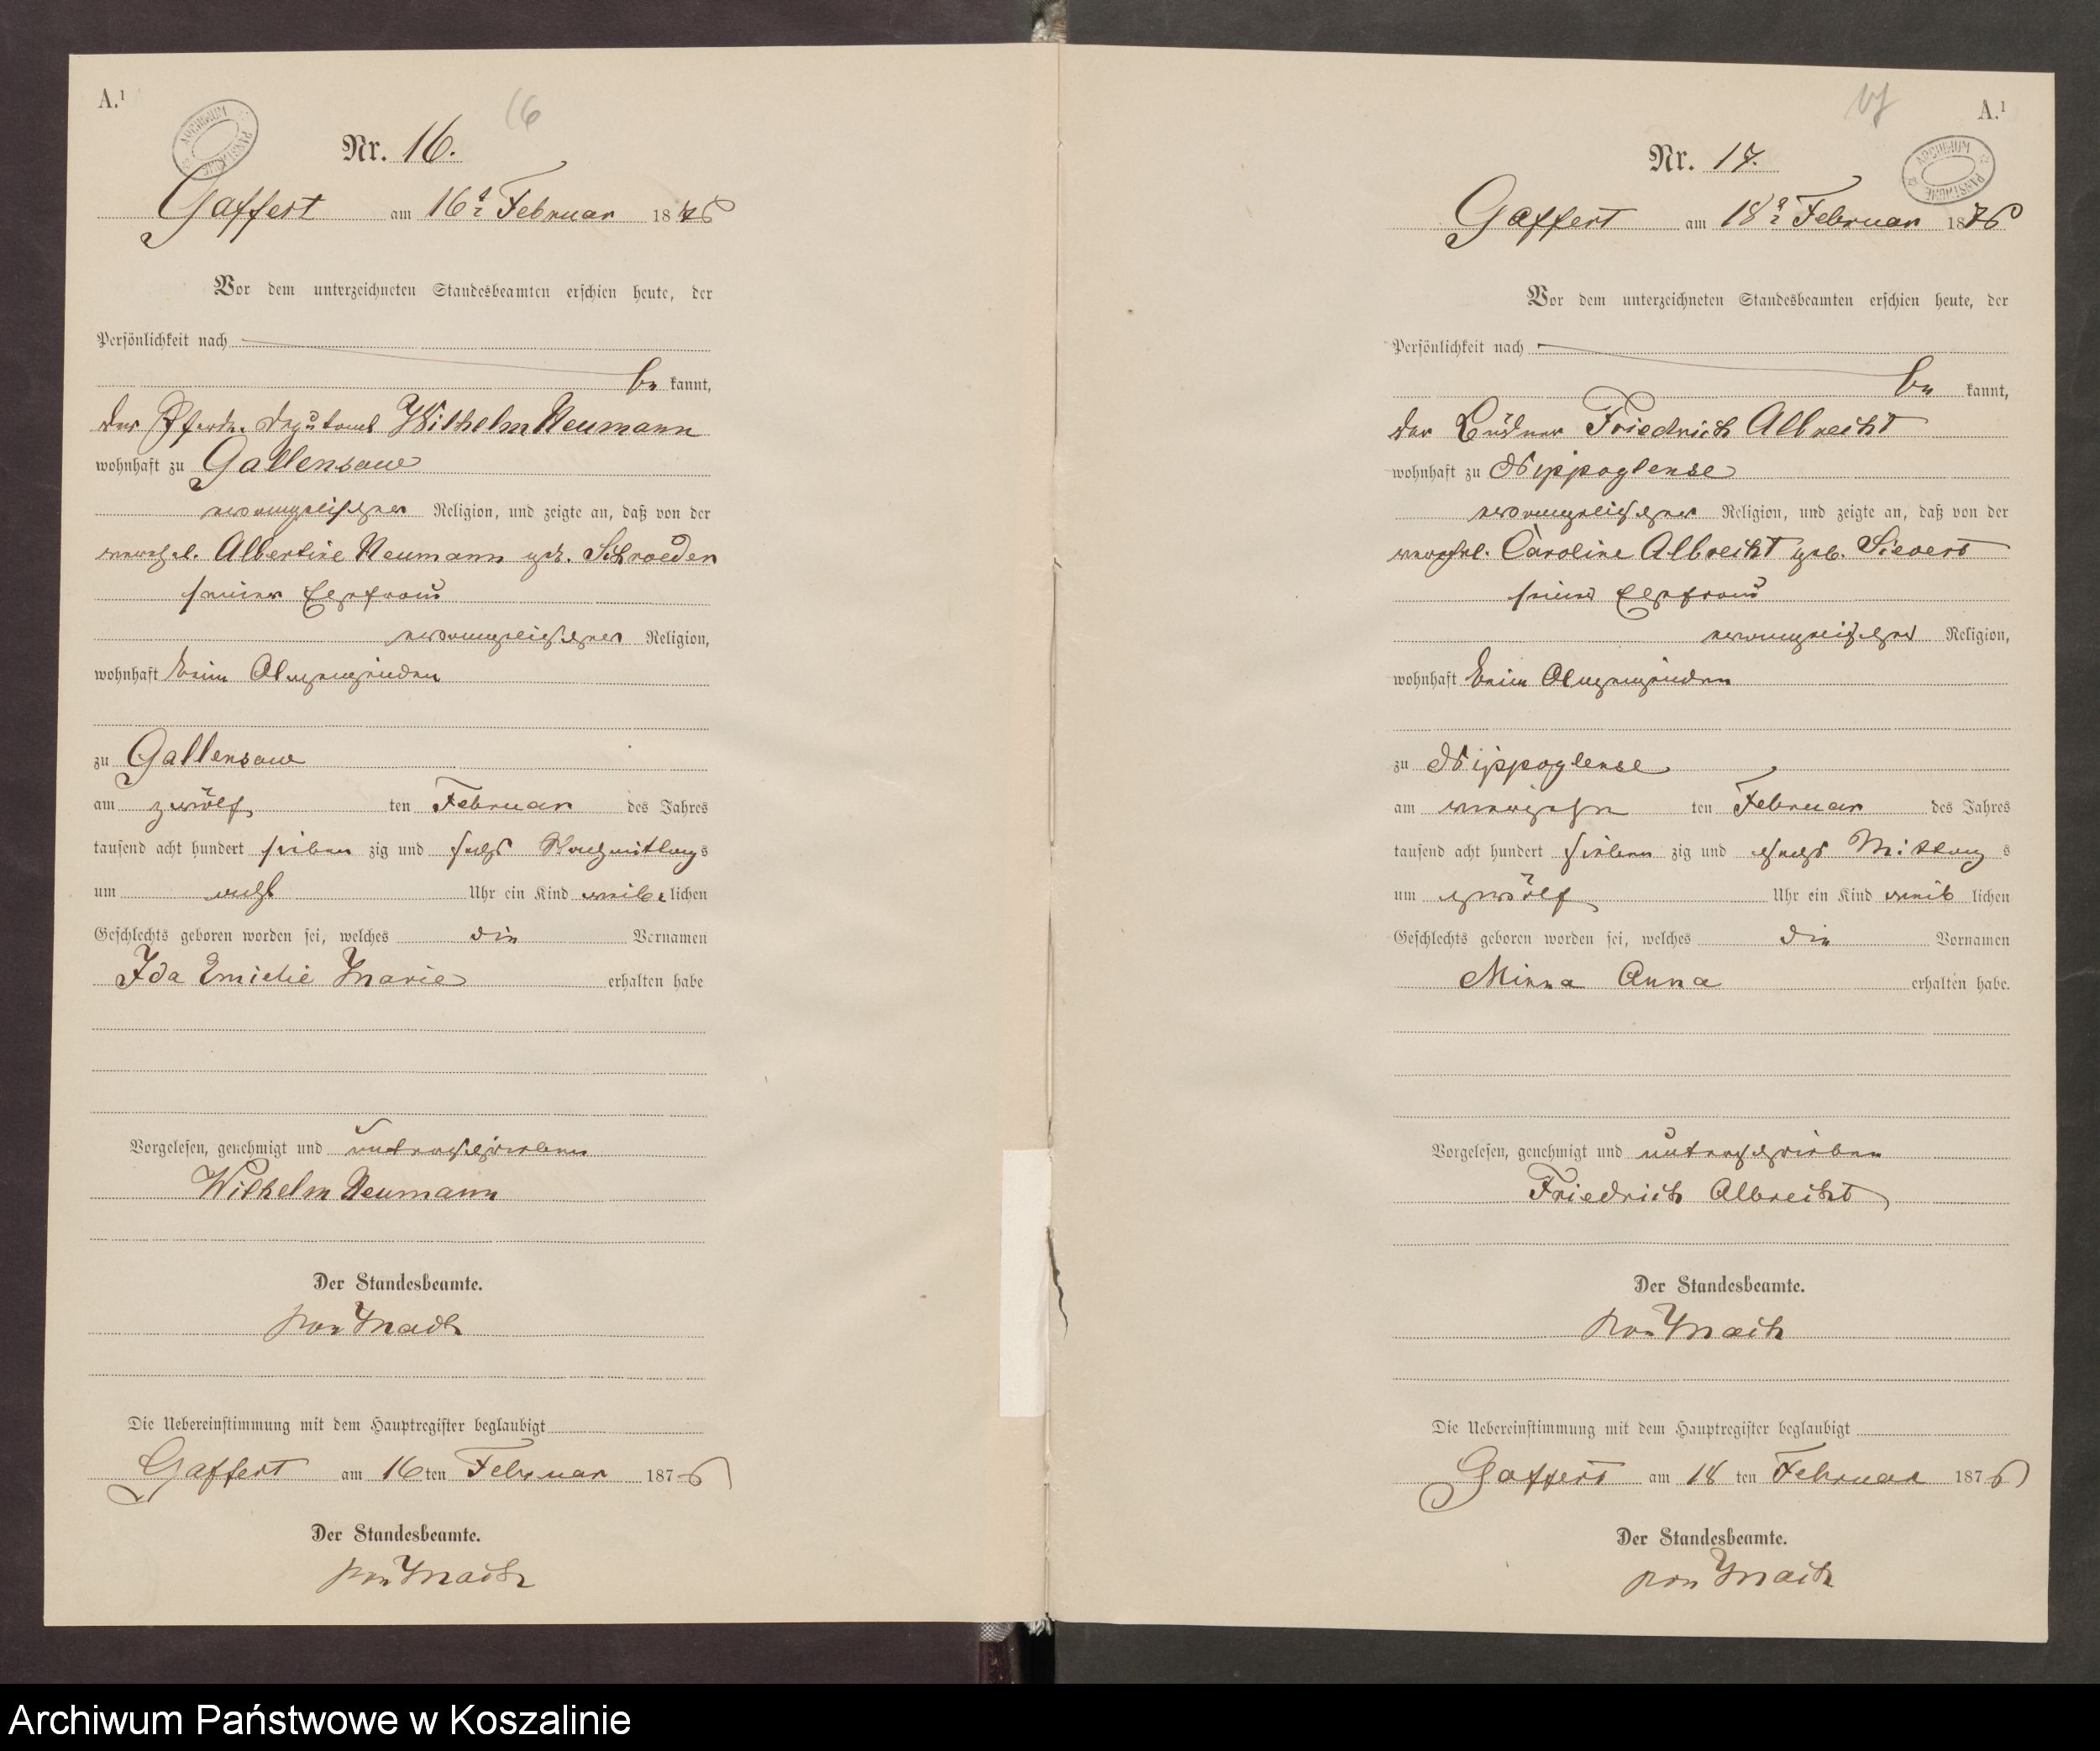 A.¹
16
ARCHIWUM PAŃSTWOWE
Nr. 16.
Gaffert am 16t Februar 1876
Vor dem unterzeichneten Standesbeamten erschien heute, der
Persönlichkeit nach
be kannt,
der Pferde-Deputant Wilhelm Neumann
wohnhaft zu Gallensow
evangelischer Religion, und zeigte an, daß von der
verehel. Albertine Neumann geb. Schroeder
seiner Ehefrau
evangelischer Religion,
wohnhaft beim Anzeigenden
zu Gallensow
am zwölf ten Februar des Jahres
tausend acht hundert sieben zig und sechs Nachmittags
um acht Uhr ein Kind weib lichen
Geschlechts geboren worden sei, welches die Vornamen
Ida Emielie Marie erhalten habe
Vorgelesen, genehmigt und unterschrieben
Wilhelm Neumann
Der Standesbeamte.
von Mach
Die Uebereinstimmung mit dem Hauptregister beglaubigt
Gaffert am 16 ten Februar 1876
Der Standesbeamte.
von Mach
17
A.¹
ARCHIWUM PAŃSTWOWE
Nr. 17.
Gaffert am 18t Februar 1876
Vor dem unterzeichneten Standesbeamten erschien heute, der
Persönlichkeit nach
be kannt,
der Büdner Friedrich Albrecht
wohnhaft zu Nippoglense
evangelischer Religion, und zeigte an, daß von der
verehel. Caroline Albrecht geb. Sievert
seiner Ehefrau
evangelischer Religion,
wohnhaft beim Anzeigenden
zu Nippoglense
am vierzehn ten Februar des Jahres
tausend acht hundert sieben zig und sechs Mittag s
um zwölf Uhr ein Kind weib lichen
Geschlechts geboren worden sei, welches die Vornamen
Minna Anna erhalten habe.
Vorgelesen, genehmigt und unterschrieben
Friedrich Albrecht
Der Standesbeamte.
von Mach
Die Uebereinstimmung mit dem Hauptregister beglaubigt
Gaffert am 18 ten Februar 1876
Der Standesbeamte.
von Mach
Archiwum Państwowe w Koszalinie